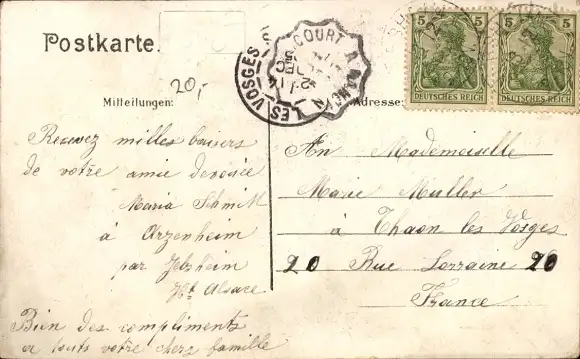 Postkarte.
20,-
COURT A NANCY
LES VOSGES
5 5
DEUTSCHES REICH
5 5
DEUTSCHES REICH
Mitteilungen:
Adresse:
Recevez milles baisers
de votre amie devouée
Maria Schmitt
à Arzenheim
par Jebsheim
Hte Alsace
Bien des compliments
a touts votre chers famille
An Mademoiselle
Marie Muller
à Thaon les Vosges
20 Rue Lorraine 20
France